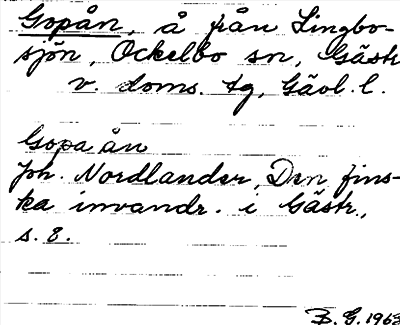 Gopån, å från Lingbo-
sjön, Ockelbo sn, Gästr
v. doms. tg, Gävl. l.
Gopa ån
Joh. Nordlander, Den fins-
ka invandr. i Gästr.,
s. 8.
B. G. 1963